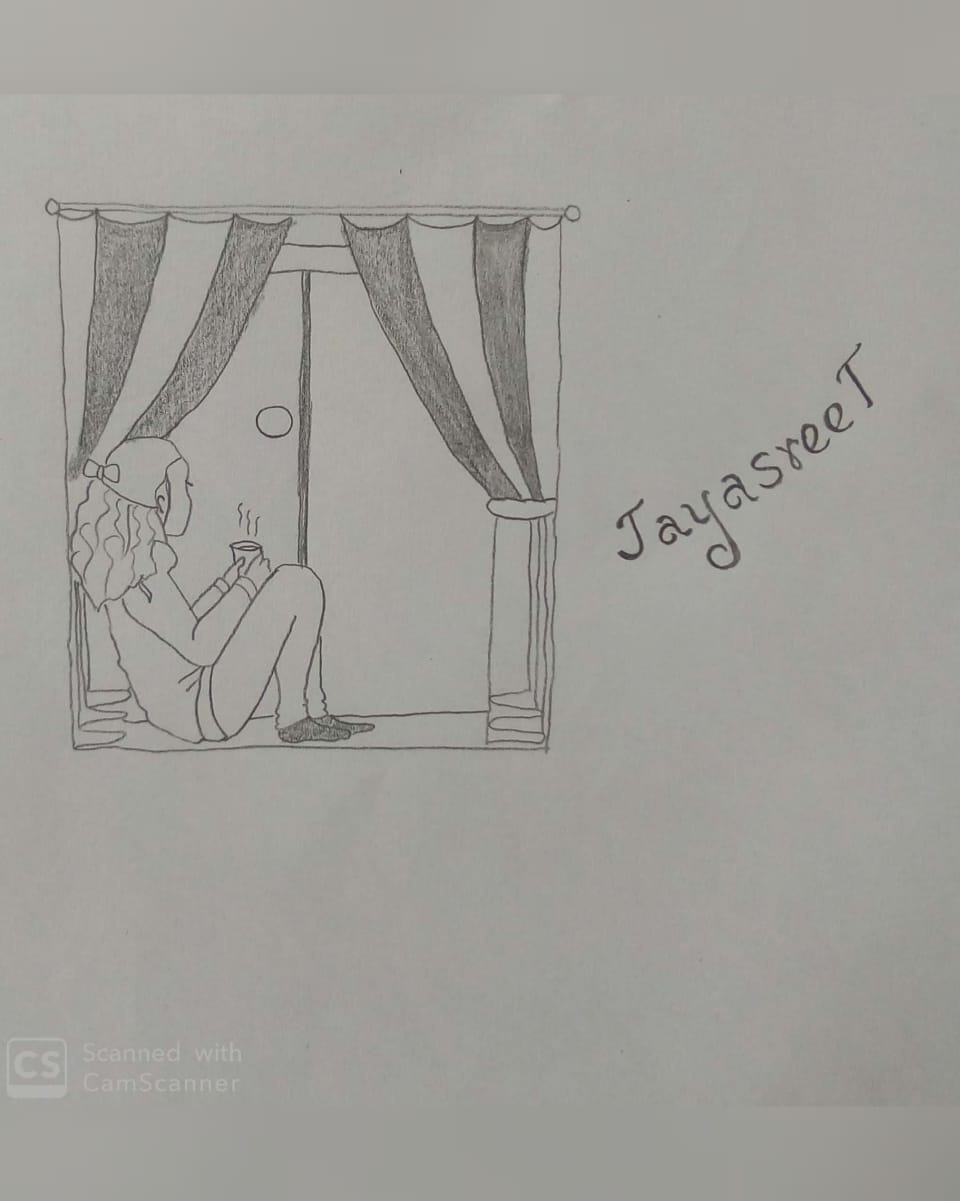 JayasreeT
CS
Scanned with
CamScanner